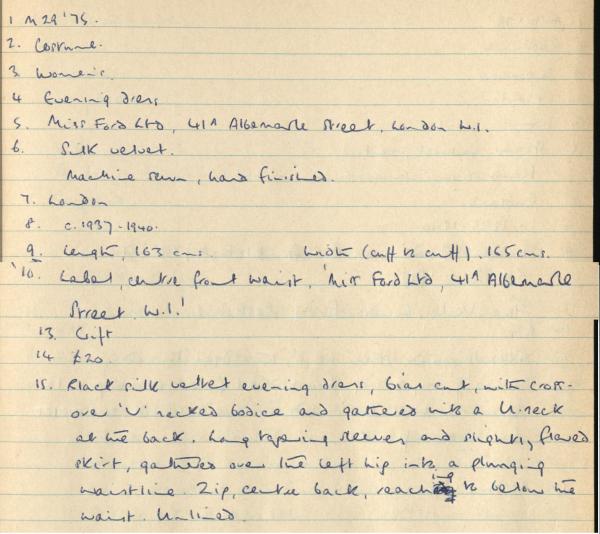 1 M29 '75.
2. Costume.
3 Women's.
4 Evening dress
5. Miss Ford Ltd, 41A Albemarle Street, London W.1.
6. Silk velvet.
Machine sewn, hand finished.
7. London
8. c. 1937-1940.
9. Length, 163 cms Width (cuff to cuff). 165 cms.
'10. Label, centre front waist, 'Miss Ford Ltd, 41A Albemarle
Street. W.1.'
13. Gift
14 £20
15. Black silk velvet evening dress, bias cut, with cross-
over 'V' necked bodice and gathered into a U-neck
at the back. Long tapering sleeves and slightly flared
skirt, gathered over the left hip into a plunging
waistline. Zip, centre back, reaching to below the
waist. Unlined.